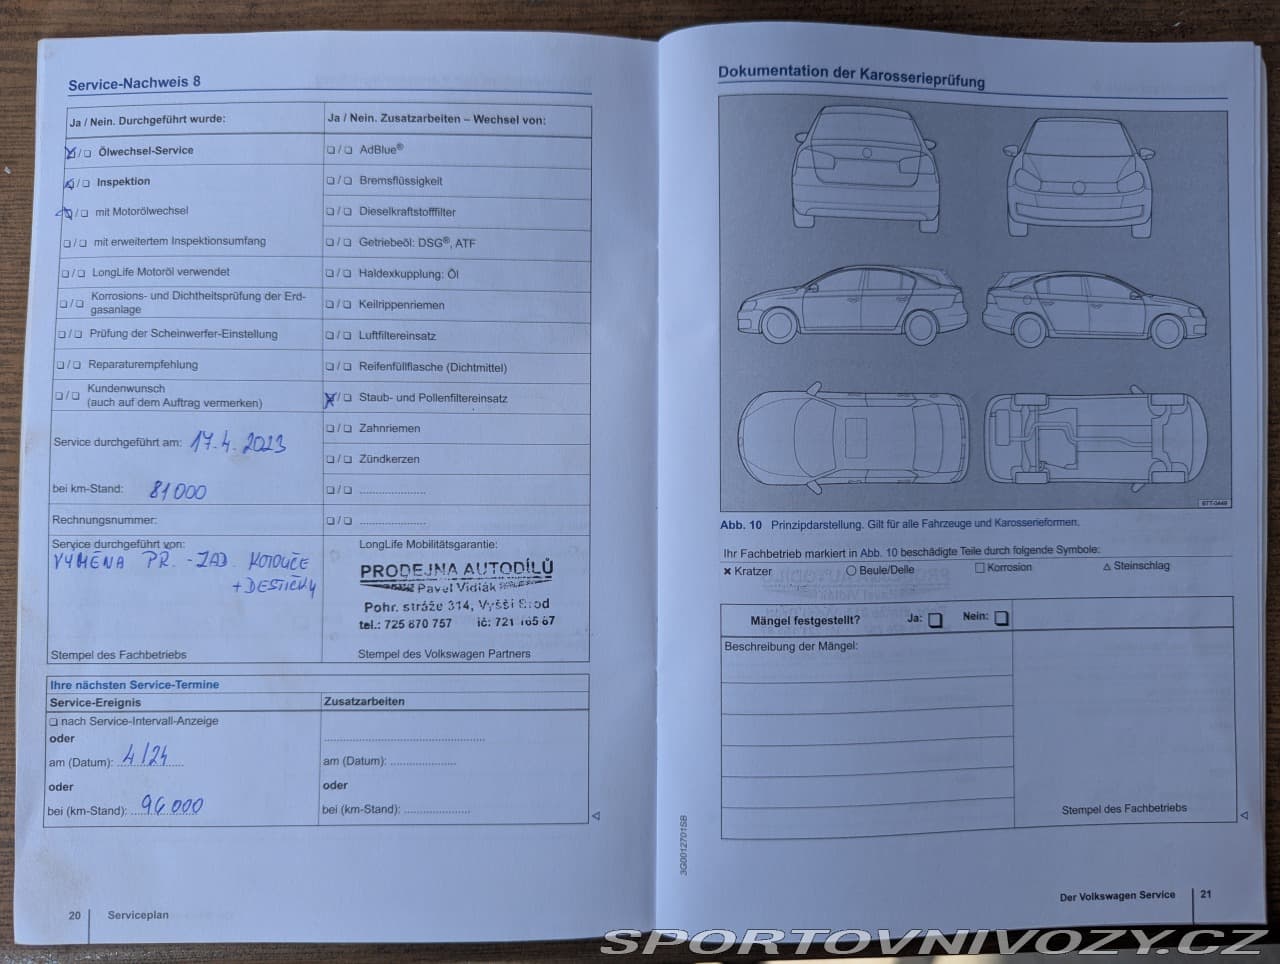 Service-Nachweis 8
Ja / Nein. Durchgeführt wurde:
Ölwechsel-Service
Inspektion
mit Motorölwechsel
mit erweitertem Inspektionsumfang
LongLife Motoröl verwendet
Korrosions- und Dichtheitsprüfung der Erd-
gasanlage
Prüfung der Scheinwerfer-Einstellung
Reparaturempfehlung
Kundenwunsch
(auch auf dem Auftrag vermerken)
Service durchgeführt am: 17.4.2023
bei km-Stand: 81000
Rechnungsnummer:
Service durchgeführt von:
VÝMĚNA PŘ. - ZAD. KOTOUČE
+ DESTIČKY
Stempel des Fachbetriebs
Ja / Nein. Zusatzarbeiten – Wechsel von:
AdBlue®
Bremsflüssigkeit
Dieselkraftstofffilter
Getriebeöl: DSG®, ATF
Haldexkupplung: Öl
Keilrippenriemen
Luftfiltereinsatz
Reifenfüllflasche (Dichtmittel)
Staub- und Pollenfiltereinsatz
Zahnriemen
Zündkerzen
LongLife Mobilitätsgarantie:
PRODEJNA AUTODÍLŮ
Pavel Vidlák
Pohr. stráže 314, Vyšší Brod
tel.: 725 870 757 ič: 721 165 67
Stempel des Volkswagen Partners
Ihre nächsten Service-Termine
Service-Ereignis
nach Service-Intervall-Anzeige
oder
am (Datum): 4/24
oder
bei (km-Stand): 96000
Zusatzarbeiten
am (Datum):
oder
bei (km-Stand):
20 Serviceplan
Dokumentation der Karosserieprüfung
Abb. 10 Prinzipdarstellung. Gilt für alle Fahrzeuge und Karosserieformen.
Ihr Fachbetrieb markiert in Abb. 10 beschädigte Teile durch folgende Symbole:
Kratzer Beule/Delle Korrosion Steinschlag
Mängel festgestellt? Ja: Nein:
Beschreibung der Mängel:
Stempel des Fachbetriebs
3G0012701SB
Der Volkswagen Service 21
SPORTOVNIVOZY.CZ